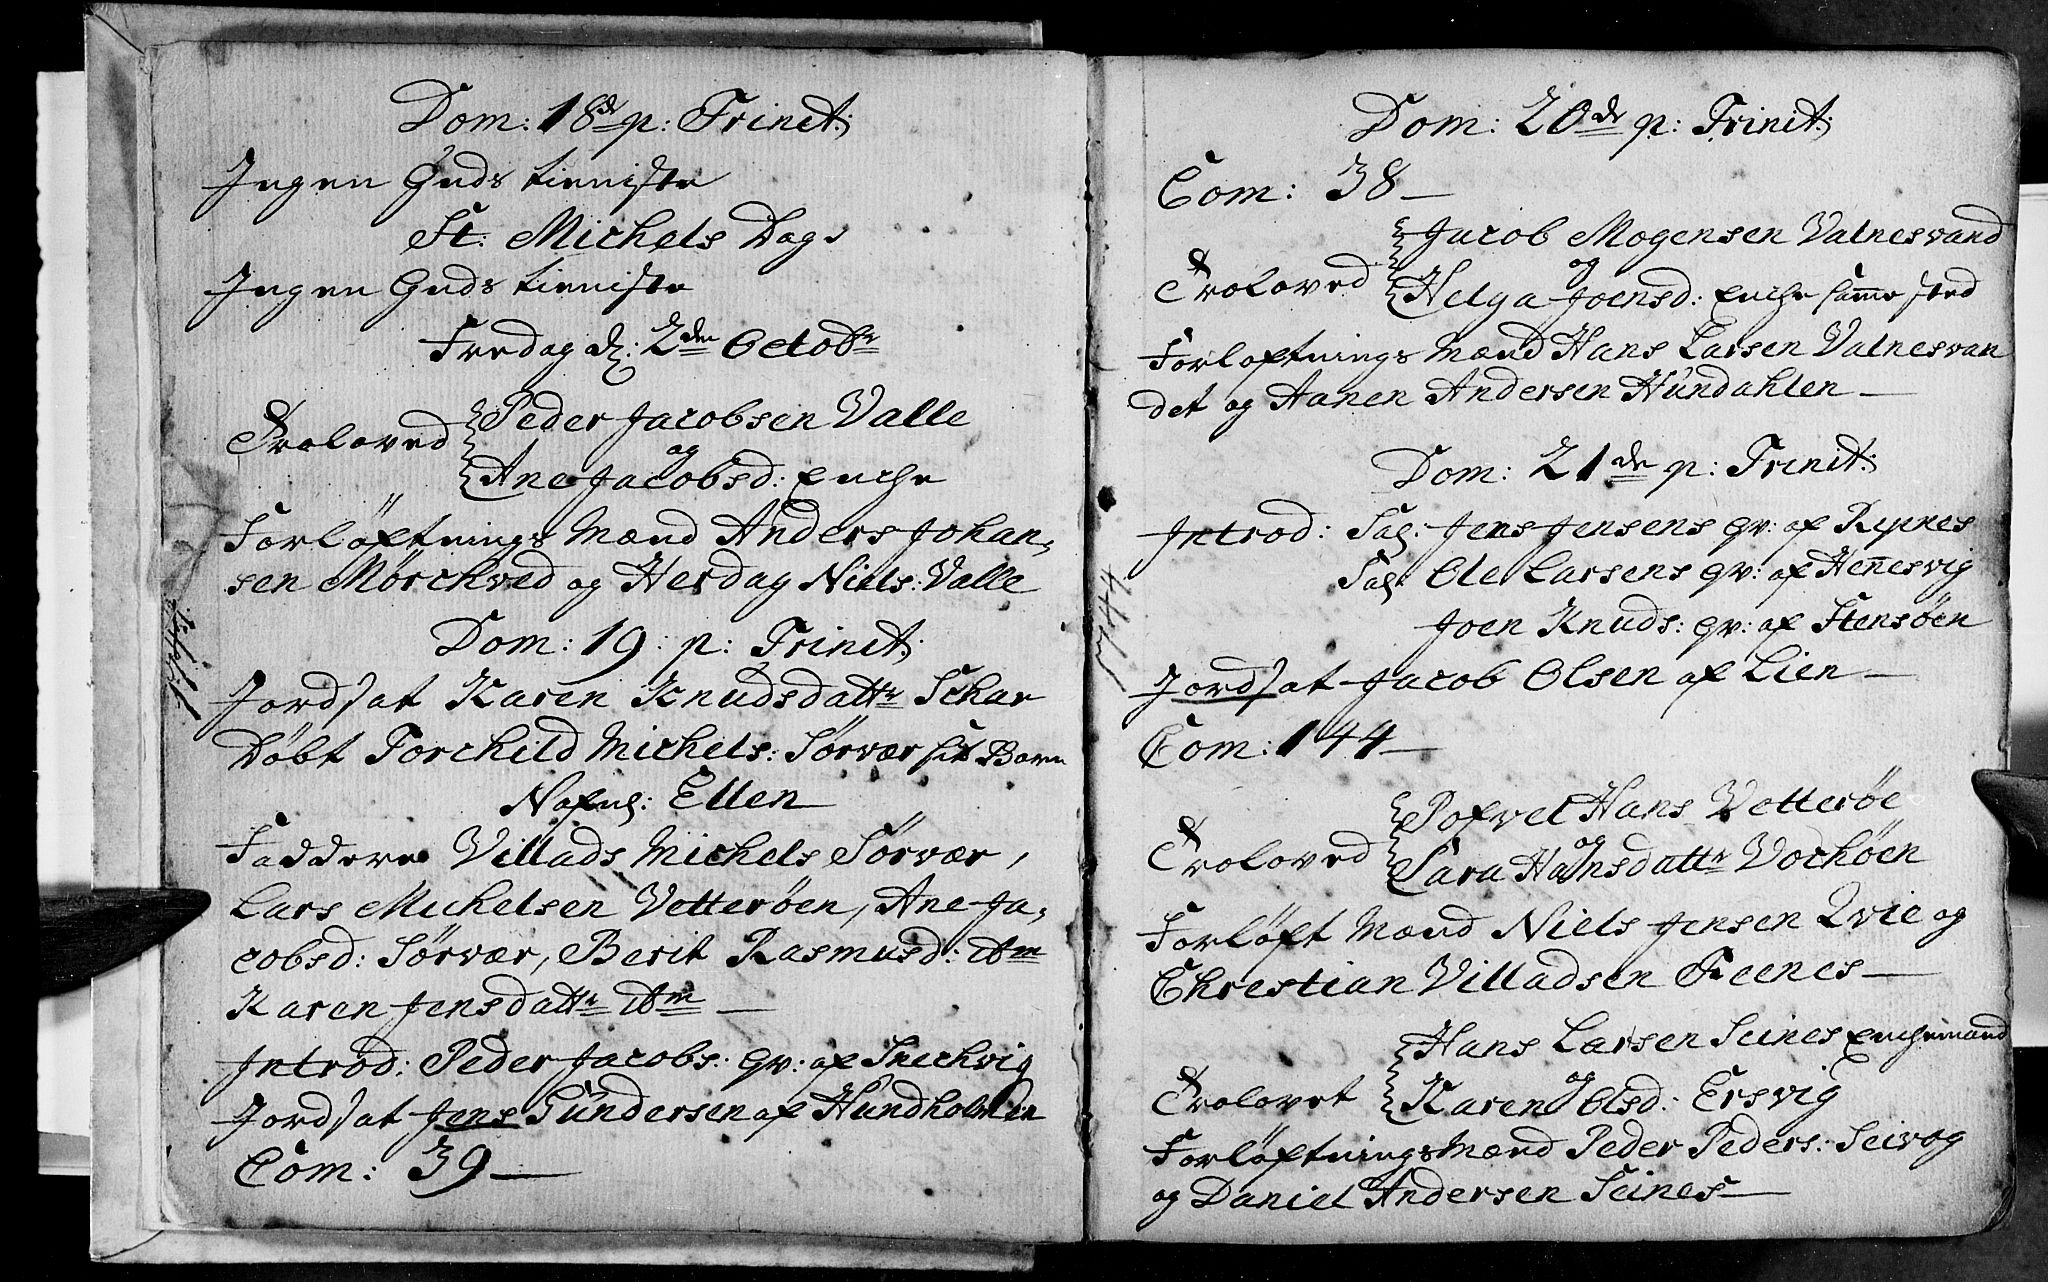 Dom: 18de p: Trinit:
Ingen Guds tienniste
St: Michels Dag
Ingen Guds tienniste
Fredag d: 2den Octobr
Troloved Peder Jacobsen Valle
og
Ane Jacobsd: Enche
Forløftnings Mænd Anders Johan-
sen Mørchved og Herdag Niels: Valle
1744
Dom: 19: p: Trinit:
Jordsat Karen Knudsdattr Schar
Døbt Torchild Michels: Sørvær sit Barn
Nafnl: Ellen
Faddere Villads Michels Sørvær,
Lars Michelsen Vetterøen, Ane Ja-
cobsd: Sørvær, Berit Rasmusd: ibm
Karen Jensdattr ibm
Introd: Peder Jacobs: qv: af Snechvig
Jordsat Jens Gundersen af Hundholmen
Com: 39
Dom: 20de p: Trinit:
Com: 38
Jacob Mogensen Valnesvand
og
Troloved Helga Joensd: Enche samme sted
Forloftnings Mænd Hans Larsen Valnesvan
det og Aanen Andersen Hundahlen
Dom: 21de p: Trinit:
Introd: Sal: Jens Jensens qv: af Repnes
Sal: Ole Larsens qv: af Hennesvig
Joen Knuds: qv: af Stensøen
1744
Jordsat Jacob Olsen af Lien
Com: 144
Pofvel Hans Vetterøe
og
Troloved Sara Hansdattr Vochøen
Forløft Mænd Niels Jensen Qvie og
Chrestian Villadsen Feenes
Hans Larsen Seines Enchemand
og
Trolovet Karen Olsd: Ersvig
Forløftnings Mænd Peder Peders: Seivog
og Daniel Andersen Seines